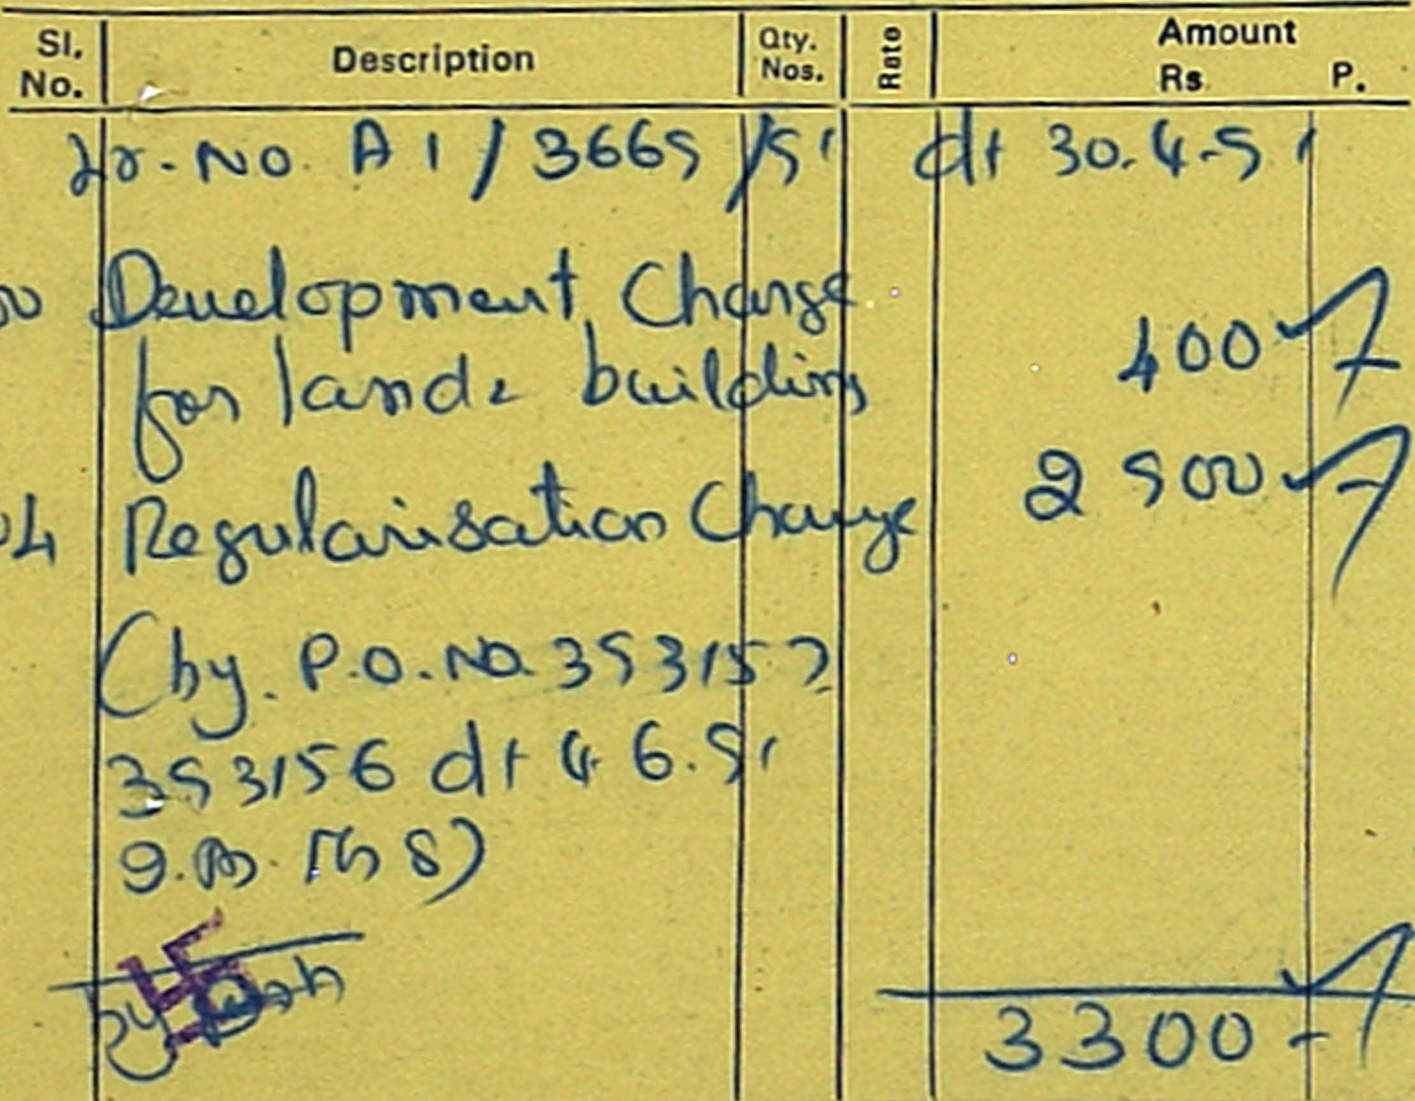 Sl. No. Description Qty. Nos. Rate Amount Rs. P.
Lr. No. A1/3669/91 dt 30.4.91
Development Charge
for land & building 400 -
04 Regularisation Charge 2900 -
(by. P.O. No. 393157
393156 dt 4.6.91
by Cash
3300 -